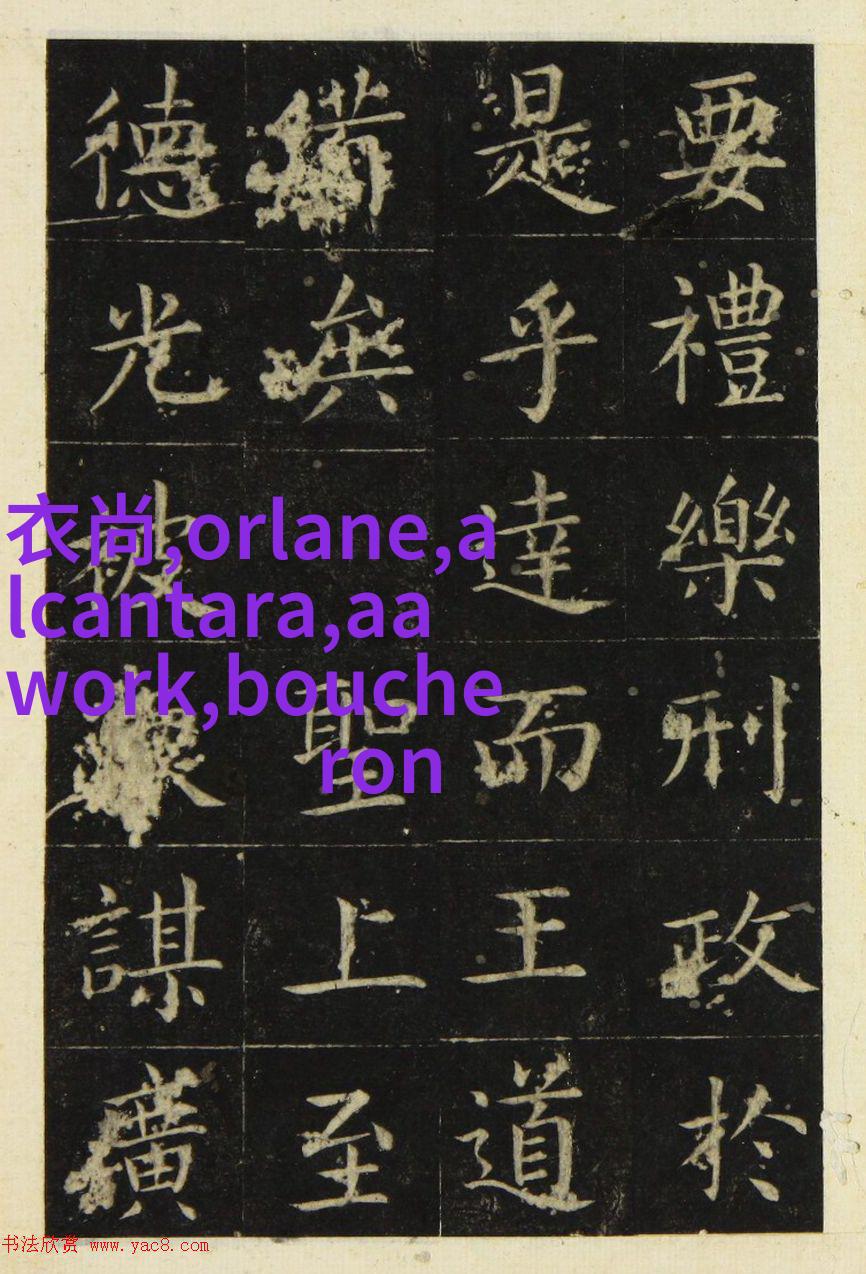 要禮樂刑政於
是乎達而王道
備
聖上至
德光被
謀廣
衣尚,orlane,a
lcantara,aa
work,bouche
ron
书法欣赏 www.yac8.com